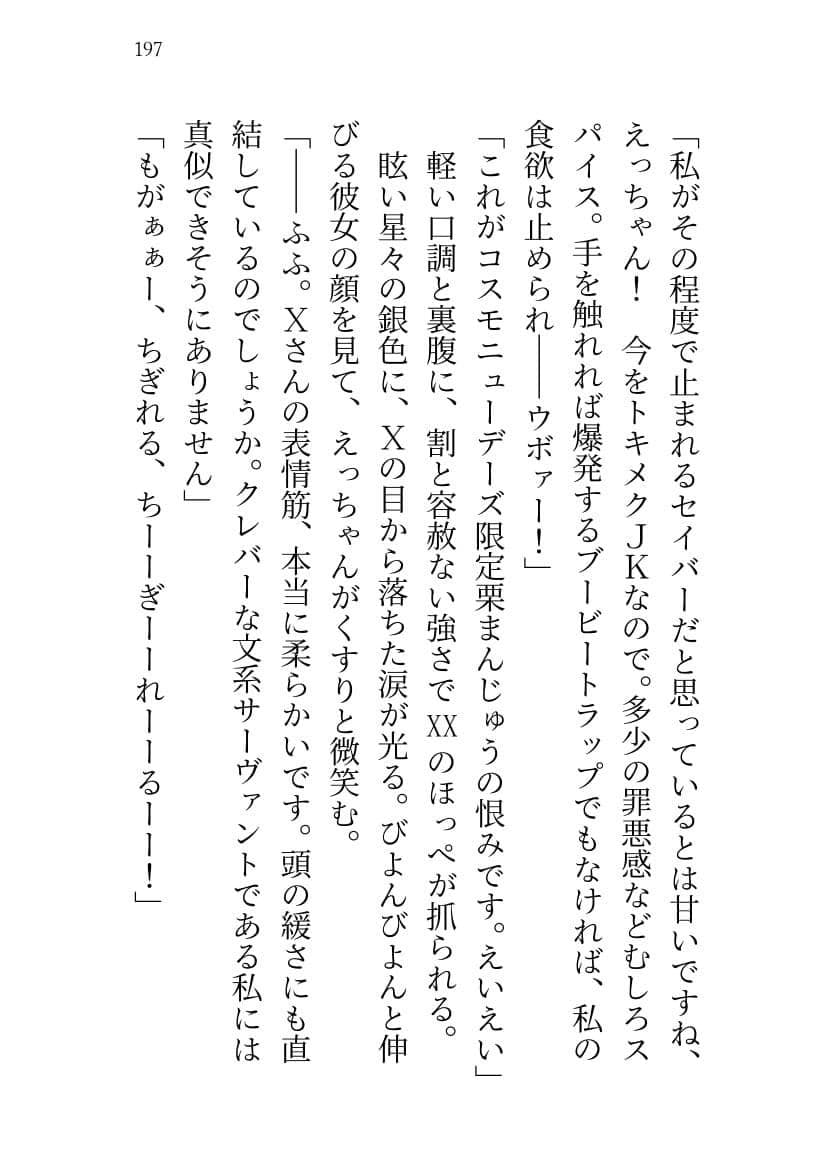 197
「私がその程度で止まれるセイバーだと思っているとは甘いですね、
えっちゃん！　今をトキメクＪＫなので。多少の罪悪感などむしろス
パイス。手を触れれば爆発するブービートラップでもなければ、私の
食欲は止められ――ウボァー！」
「これがコスモニューデーズ限定栗まんじゅうの恨みです。えいえい」
　軽い口調と裏腹に、割と容赦ない強さでXXのほっぺが抓られる。
　眩い星々の銀色に、Ｘの目から落ちた涙が光る。びよんびよんと伸
びる彼女の顔を見て、えっちゃんがくすりと微笑む。
「――ふふ。Ｘさんの表情筋、本当に柔らかいです。頭の緩さにも直
結しているのでしょうか。クレバーな文系サーヴァントである私には
真似できそうにありません」
「もがぁぁー、ちぎれる、ちーーぎーーれーーるーー！」